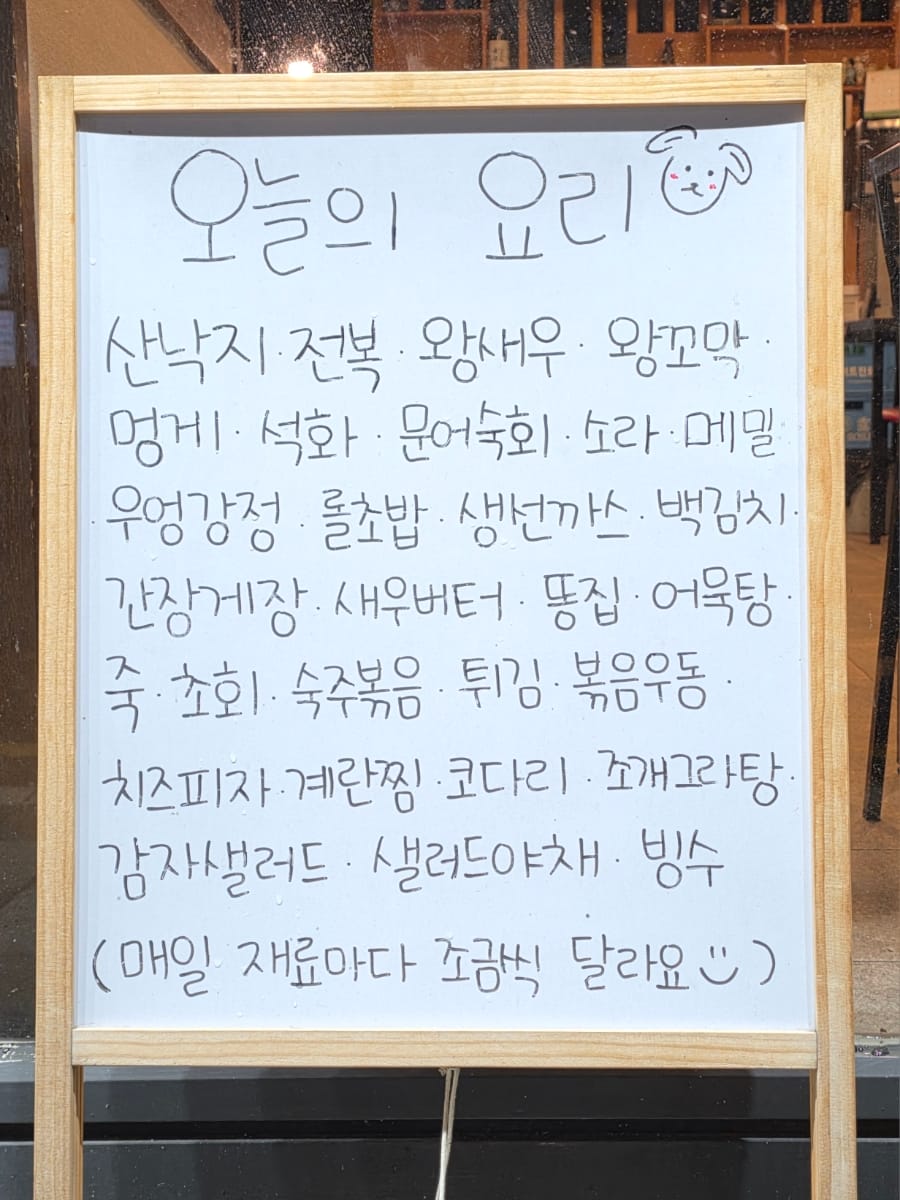 오늘의 요리
산낙지·전복·왕새우·왕꼬막·
멍게·석화·문어숙회·소라·메밀
·우엉강정·롤초밥·생선까스·백김치·
간장게장·새우버터·똥집·어묵탕·
죽·초회·숙주볶음·튀김·볶음우동·
치즈피자·계란찜·코다리·조개그라탕·
감자샐러드·샐러드야채·빙수
(매일 재료마다 조금씩 달라요)